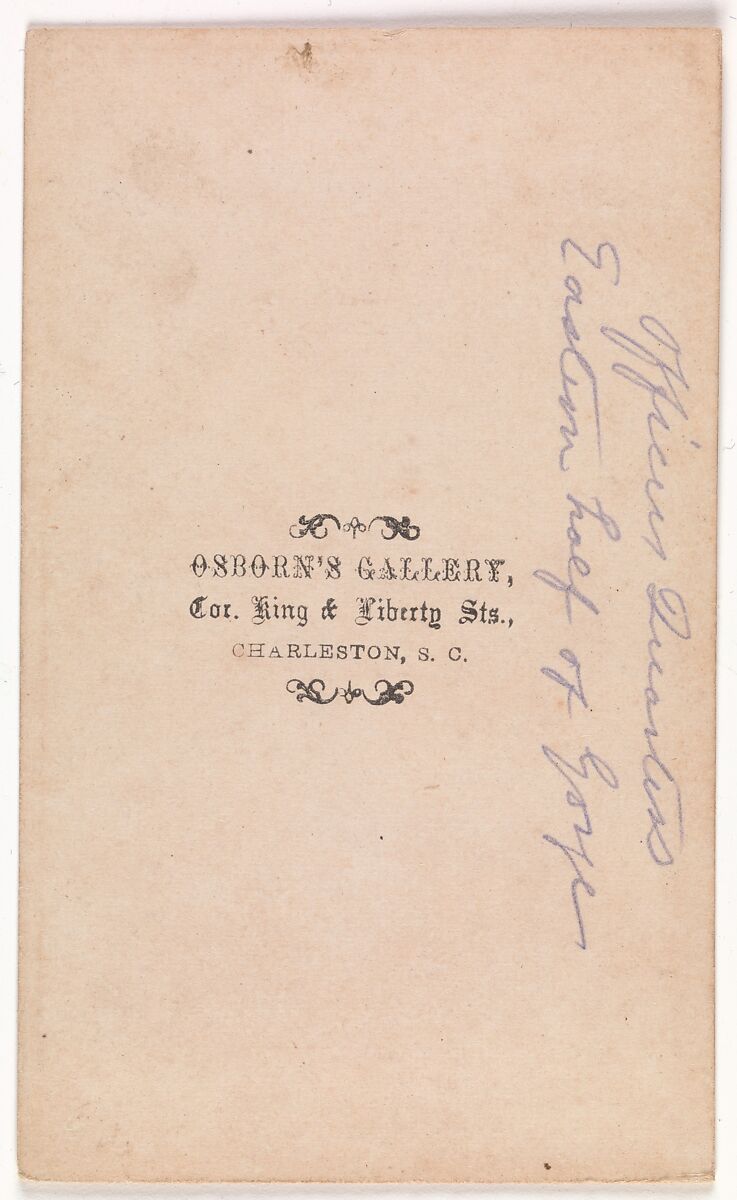 OSBORN'S GALLERY,
Cor. King & Liberty Sts.,
CHARLESTON, S. C.
Officers Quarters
Eastern half of Gorge